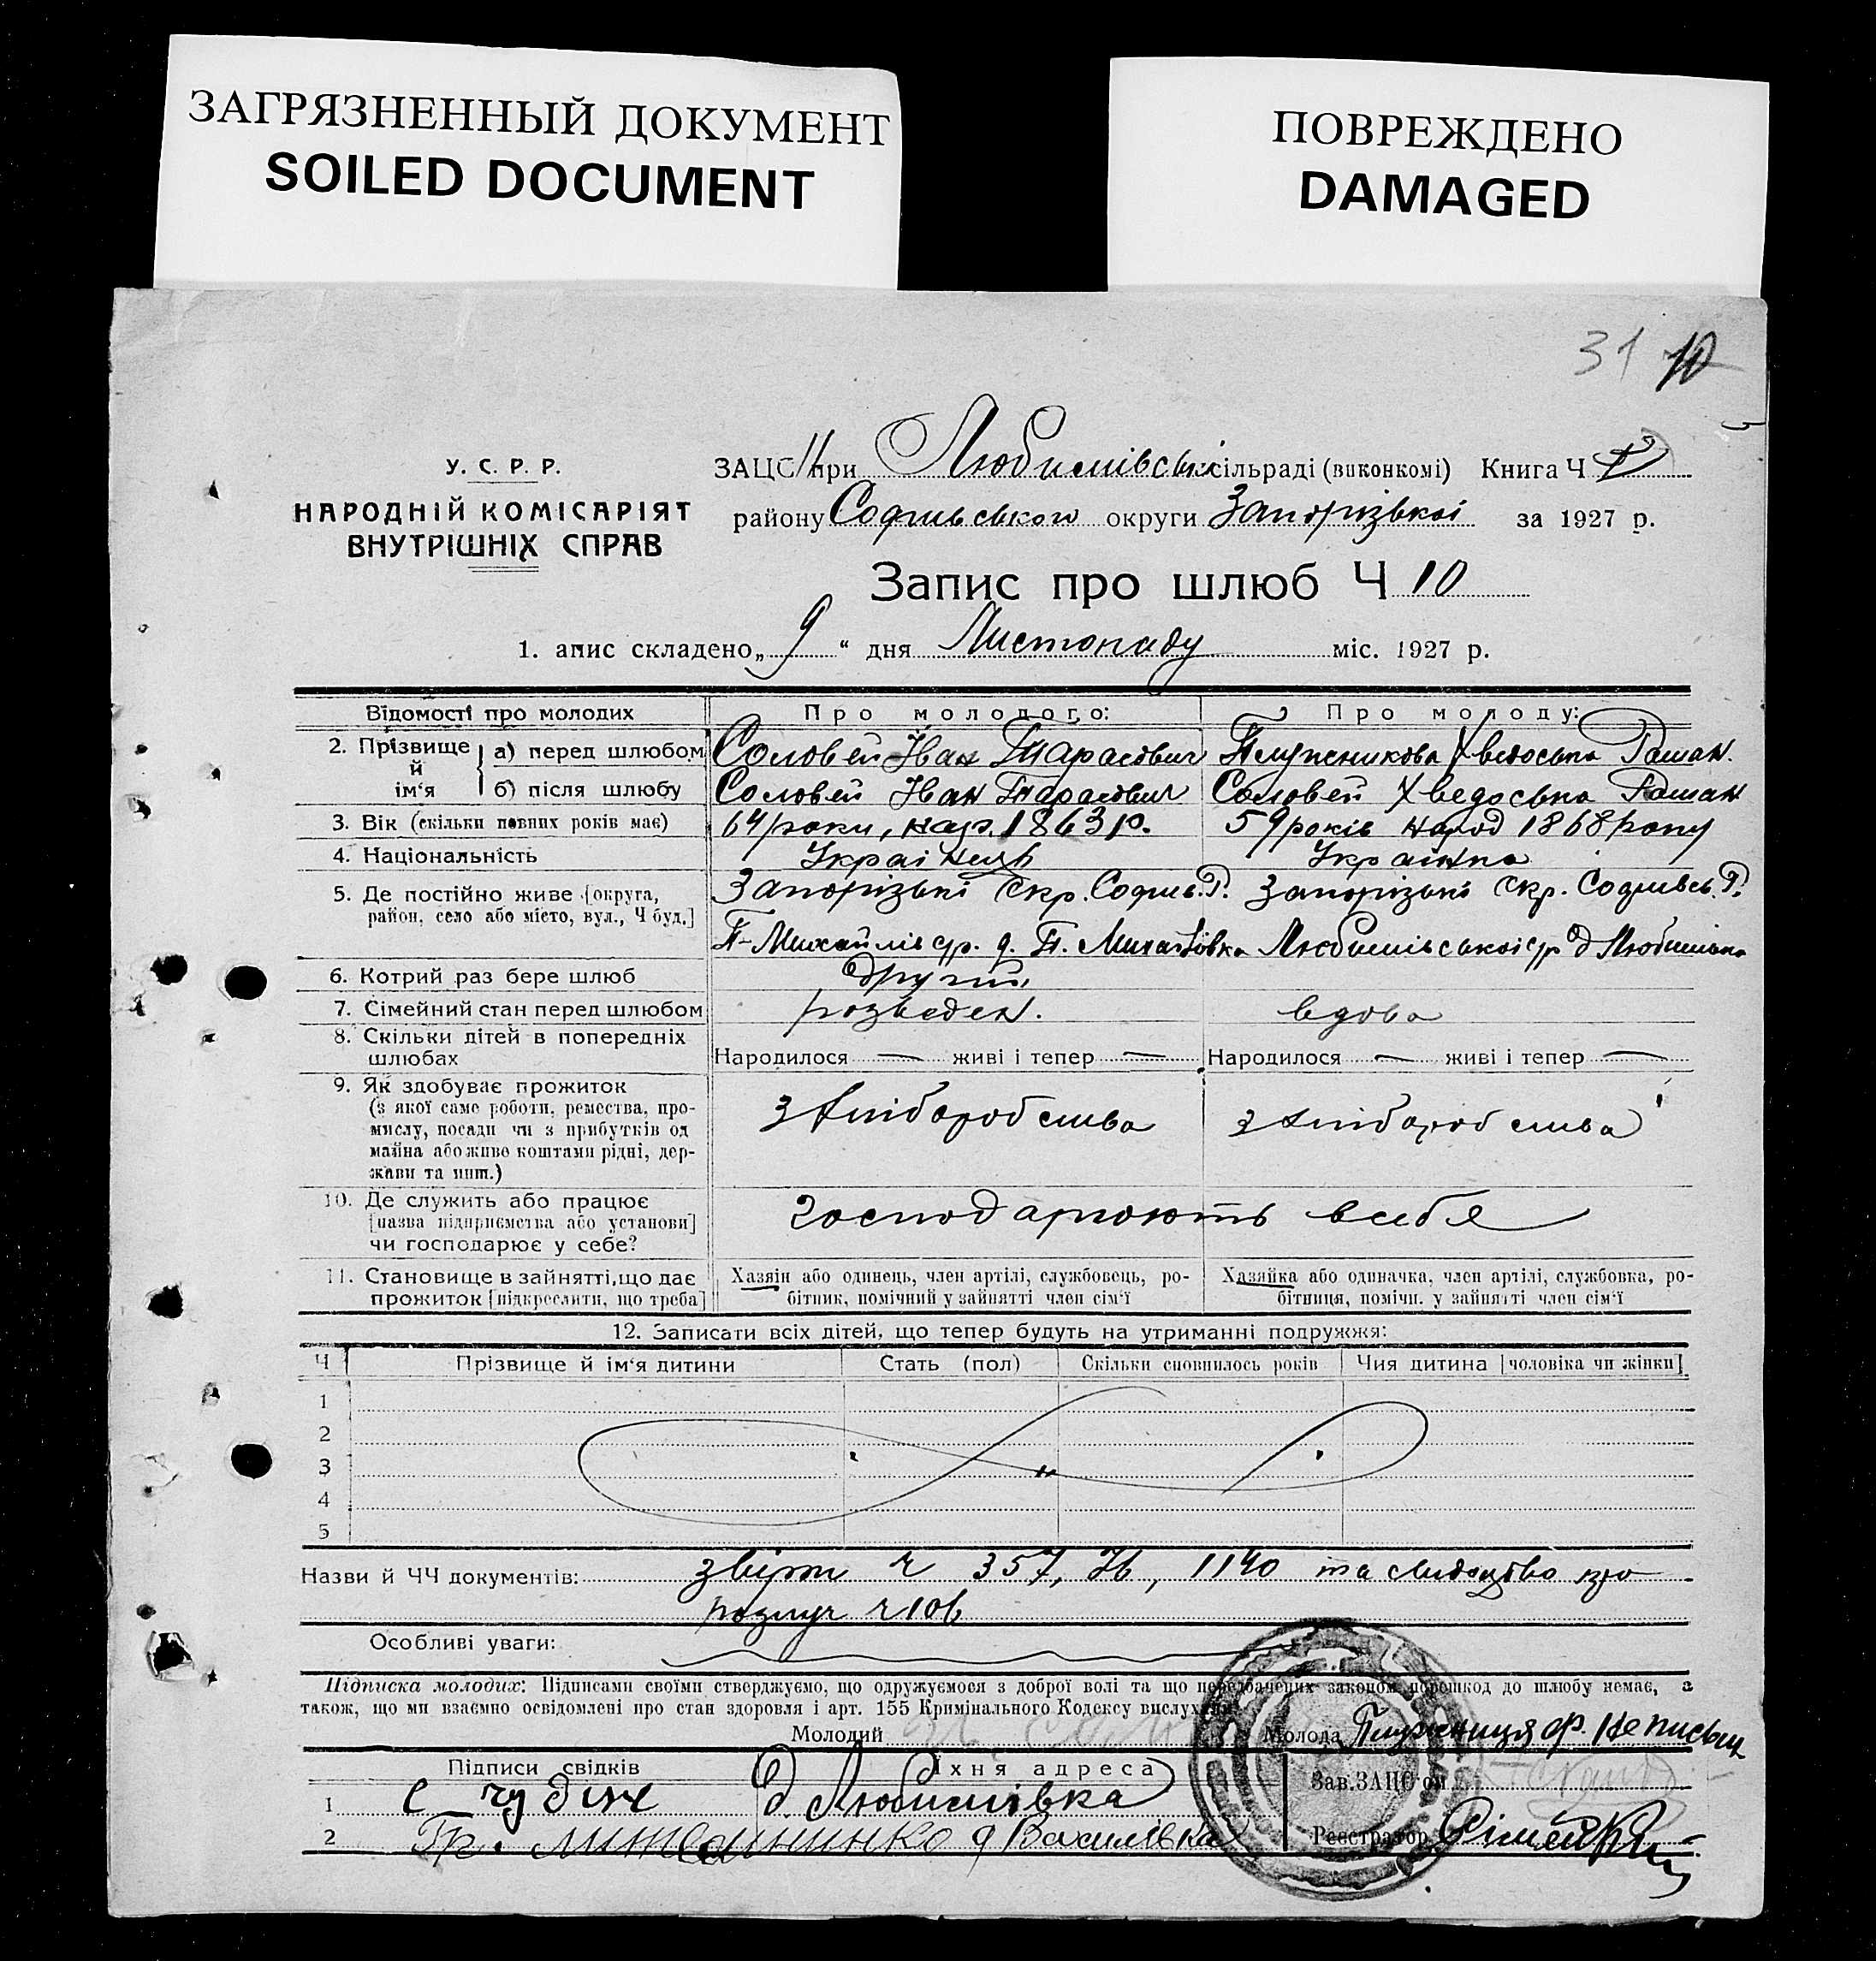 ЗАГРЯЗНЕННЫЙ ДОКУМЕНТ
SOILED DOCUMENT
ПОВРЕЖДЕНО
DAMAGED
31 10
У. С. Р. Р.
НАРОДНІЙ КОМІСАРІЯТ
ВНУТРІШНІХ СПРАВ
ЗАЦС при Любимівськ сільраді (виконкомі) Книга Ч
району Софиївського округи Запорізької за 1927 р.
Запис про шлюб Ч 10
1. апис складено „ 9 “ дня Листопаду міс. 1927 р.
Відомості про молодих Про молодого: Про молоду:
2. Прізвище й ім‘я а) перед шлюбом Соловей Іван Тарасович Плужникова Хведоська Роман.
б) після шлюбу Соловей Іван Тарасович Соловей Хведоська Роман
3. Вік (скільки повних років має) 64 роки, нар. 1863 р. 59 років народ 1868 року
4. Національність Українець Українка
5. Де постійно живе [округа, район, село або місто, вул., Ч буд.] Запорізькі окр. Софиів. Р. Запорізькі окр. Софиївсь. Р.
П-Михайлів с/р. д. П. Михайлівка Любимівської с/р д Любимівка
6. Котрий раз бере шлюб другий
7. Сімейний стан перед шлюбом розведен. вдова
8. Скільки дітей в попередніх шлюбах Народилося — живі і тепер — Народилося — живі і тепер —
9. Як здобуває прожиток
(з якої саме роботи, ремества, про-
мислу, посади чи з прибутків од
майна або живе коштами рідні, дер-
жави та инш.)
з хліборобства з хліборобства
10. Де служить або працює
[назва підприємства або установи]
чи господарює у себе?
господарюють в себе
11. Становище в зайнятті, що дає
прожиток [підкреслити, що треба]
Хазяїн або одинець, член артілі, службовець, ро-
бітник, помічний у зайнятті член сім‘ї
Хазяйка або одиначка, член артілі, службовка, ро-
бітниця, помічн. у зайнятті член сім‘ї
12. Записати всіх дітей, що тепер будуть на утриманні подружжя:
Ч Прізвище й ім‘я дитини Стать (пол) Скільки сповнилось років Чия дитина [чоловіка чи жінки]
1
2
3
4
5
Назви й ЧЧ документів: ч 357, 76, 1140 та свидоцтво про
розлуч ч 106
Особливі уваги:
Підписка молодих: Підписами своїми стверджуємо, що одружуємося з доброї волі та що передбачених законом перешкод до шлюбу немає, а
також, що ми взаємно освідомлені про стан здоровля і арт. 155 Кримінального Кодексу вислухали.
Молодий Молода
Підписи свідків Їхня адреса Зав. ЗАЦС‘ом
1 д. Любимівка
2 Гр. д Василівка Реєстратор